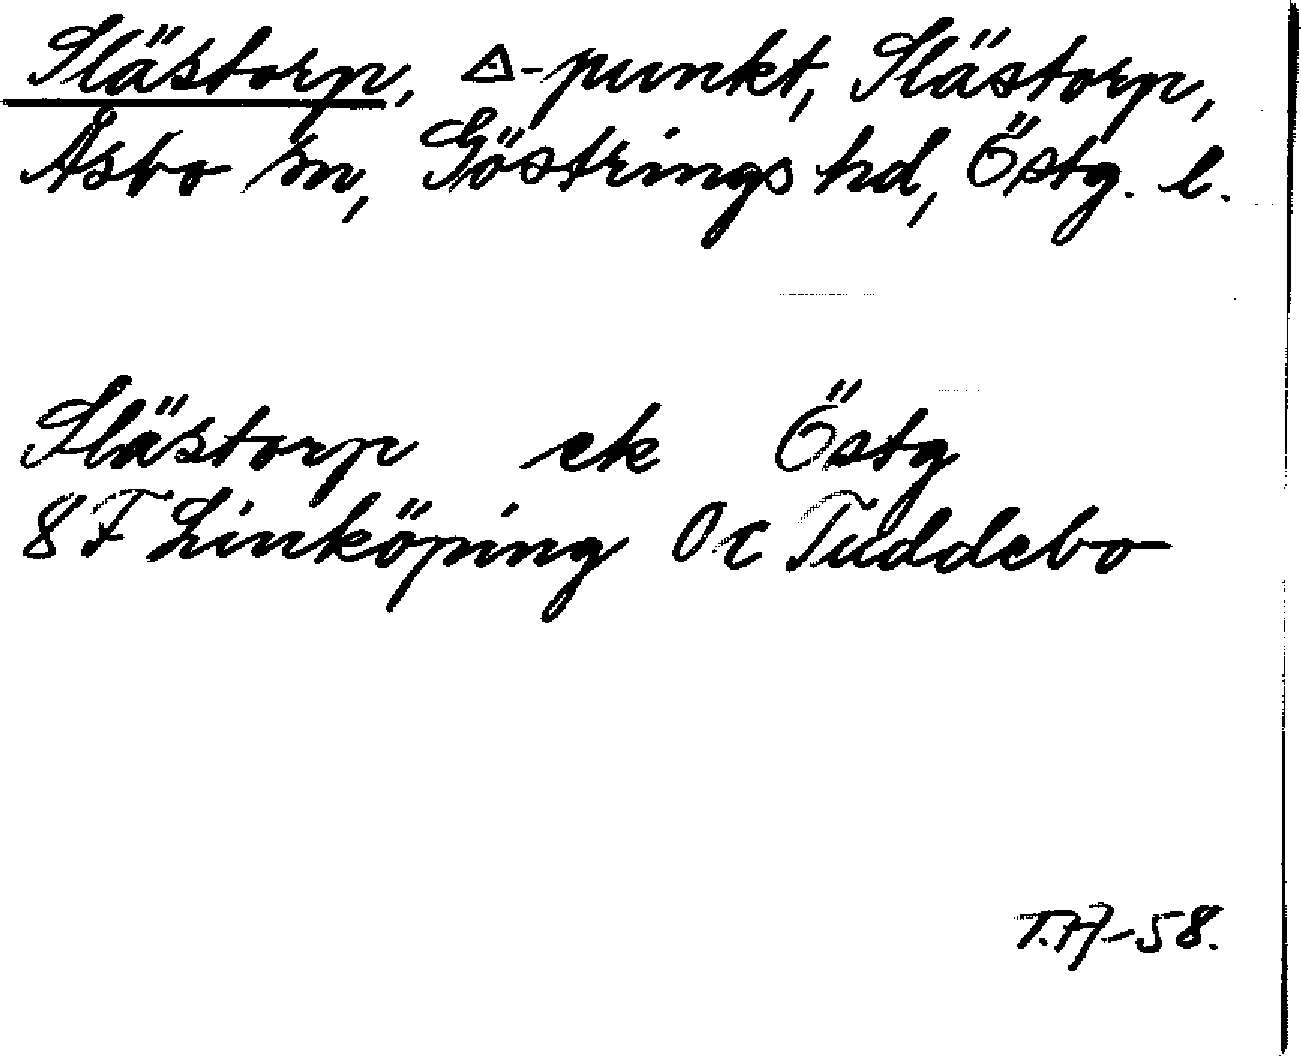 Slästorp, △-punkt, Slästorp,
Åsbo sn, Göstrings hd, Östg. l.
Slästorp ek Östg
8 F Linköping 0 c Tuddebo
T.H-58.